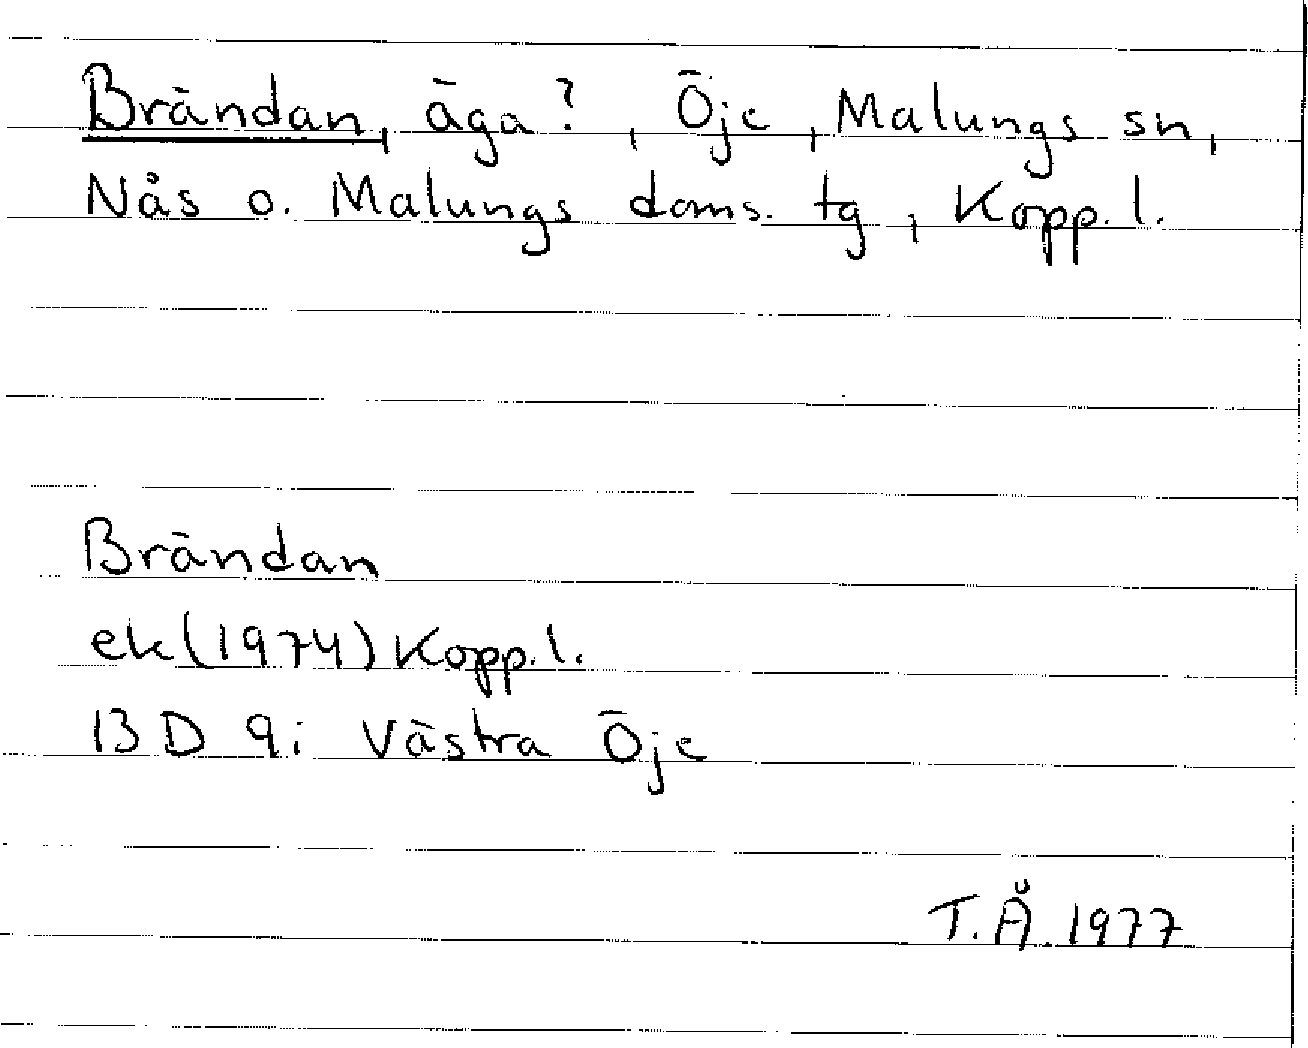 Brändan, äga?, Öje, Malungs sn,
Nås o. Malungs doms. tg, Kopp. l.
Brändan
ek (1974) Kopp. l.
13 D 9i Västra Öje
T. Å. 1977